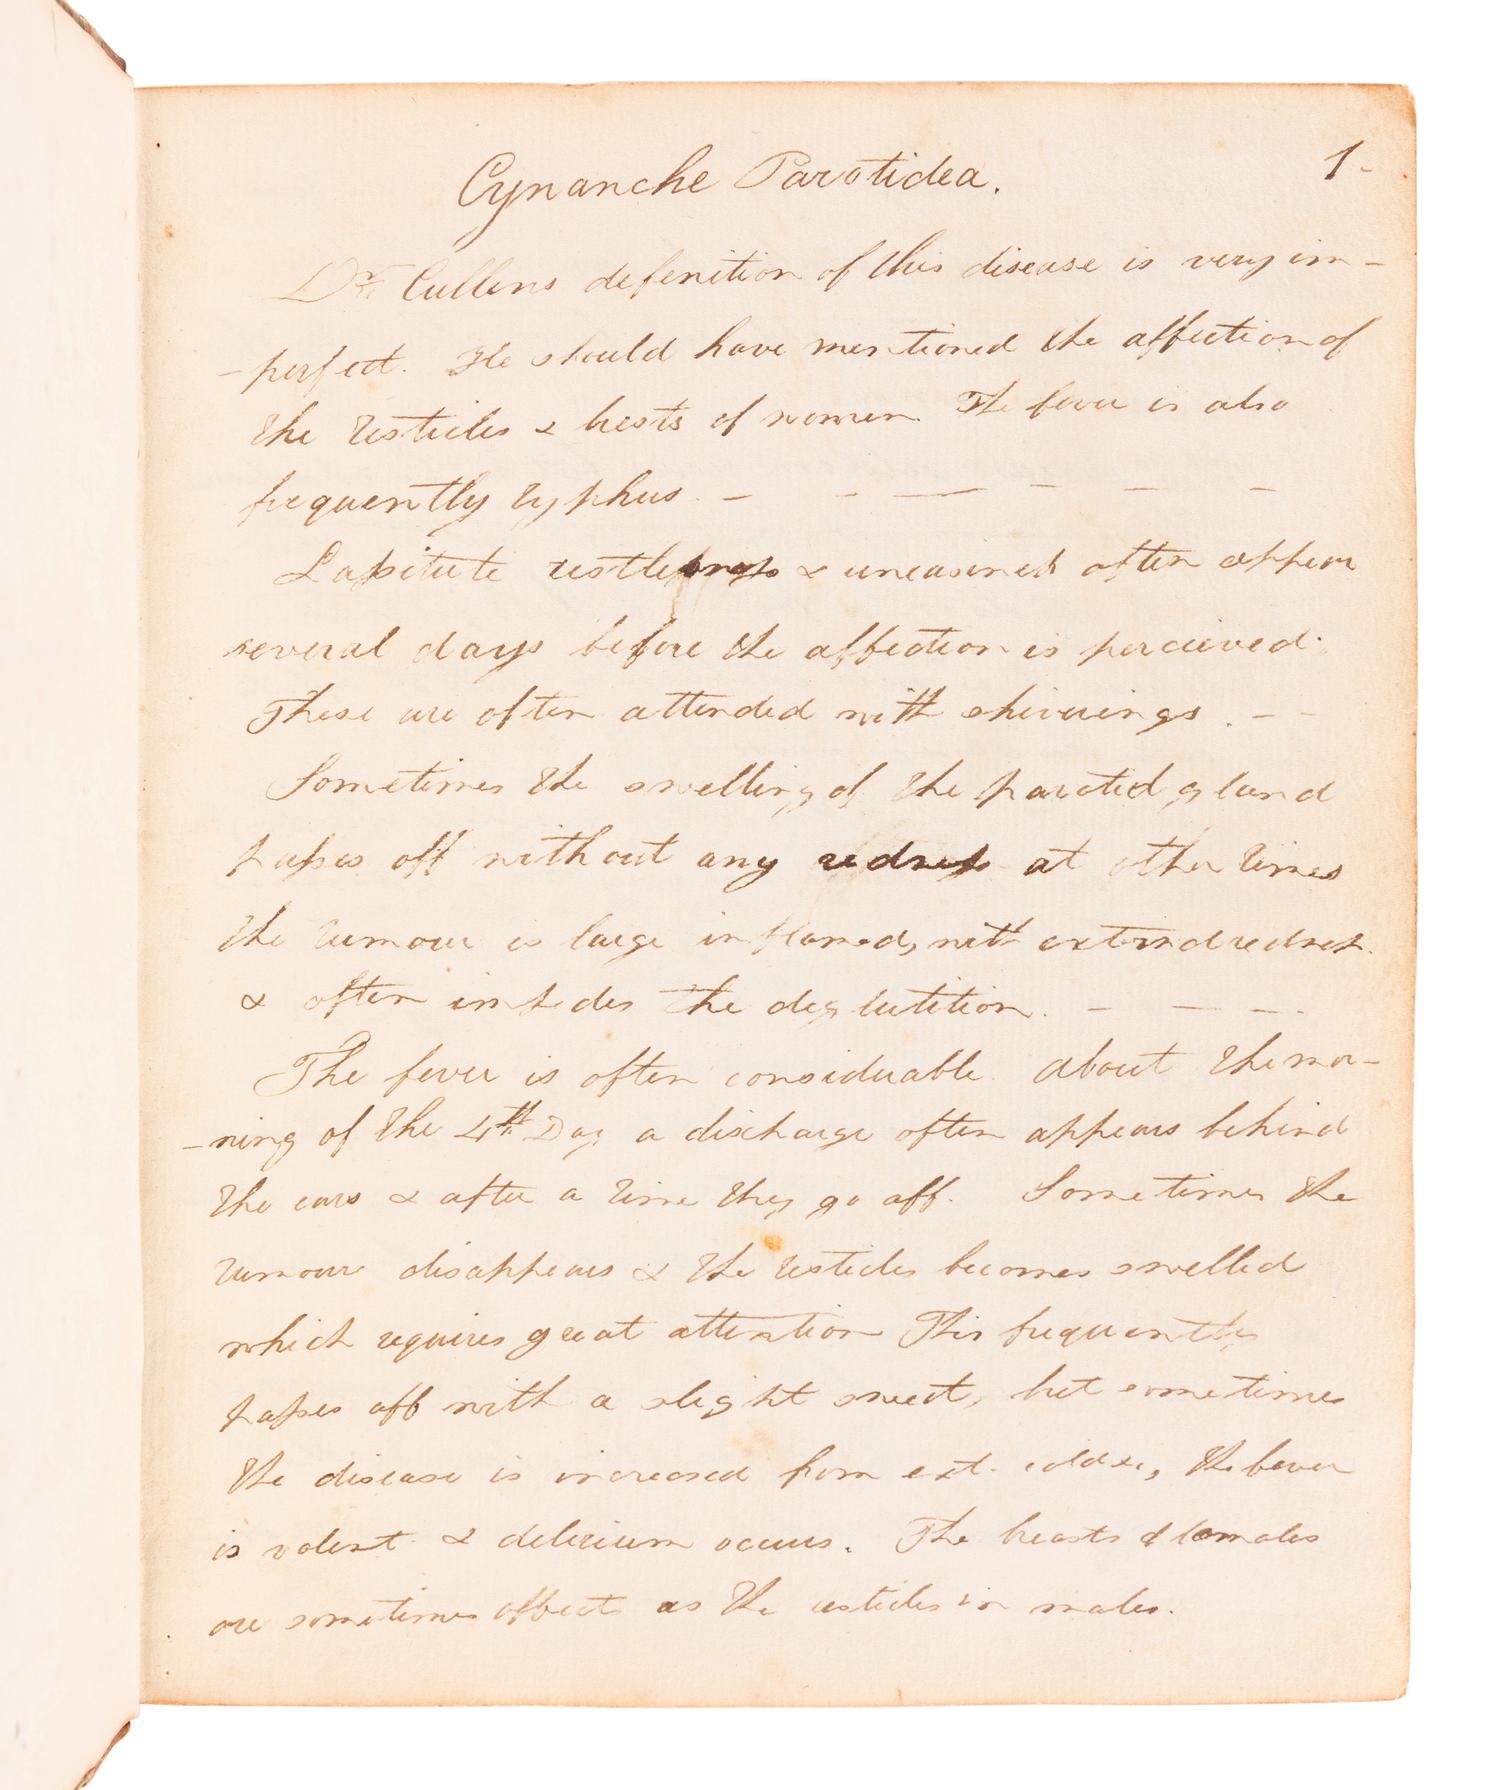 Cynanche Parotidea. 1-
Dr. Cullens defenition of this disease is very im-
-perfect. He should have mentioned the affection of
the testicles & brests of women. The fever is also
frequently typhus. - - — - — -
Laſsitute restleſsneſs & uneasiness often appear
several days before the affection is percieved.
These are often attended with shiverings. - -
Sometimes the swelling of the parotid gland
paſses off without any redneſs at other times
the tumour is large inflamed, with external redness.
& often impedes the deglutition. - — - -
The fever is often considerable. about the mor-
-ning of the 4th Day a discharge often appears behind
the ears & after a time they go off. Sometimes the
tumour disappears & the testicles becomes swelled
which requires great attention This frequently
paſses off with a slight sweat, but sometimes
the disease is increased from ext. cold &c, the fever
is volent & delirium occurs. The breasts of females
are sometimes affects as the testicles in males.